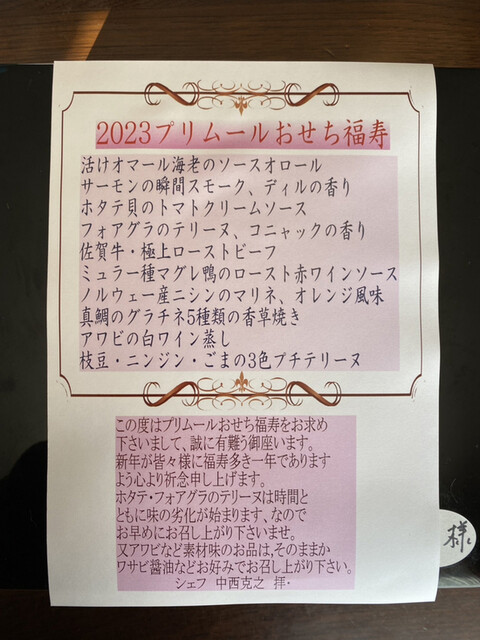 2023プリムールおせち福寿
活けオマール海老のソースオロール
サーモンの瞬間スモーク、ディルの香り
ホタテ貝のトマトクリームソース
フォアグラのテリーヌ、コニャックの香り
佐賀牛・極上ローストビーフ
ミュラー種マグレ鴨のロースト赤ワインソース
ノルウェー産ニシンのマリネ、オレンジ風味
真鯛のグラチネ5種類の香草焼き
アワビの白ワイン蒸し
枝豆・ニンジン・ごまの3色プチテリーヌ
この度はプリムールおせち福寿をお求め
下さいまして、誠に有難う御座います。
新年が皆々様に福寿多き一年であります
よう心より祈念申し上げます。
ホタテ・フォアグラのテリーヌは時間と
ともに味の劣化が始まります、なので
お早めにお召し上がり下さいませ。
又アワビなど素材味のお品は、そのままか
ワサビ醤油などお好みでお召し上がり下さい。
シェフ 中西克之 拝・
様